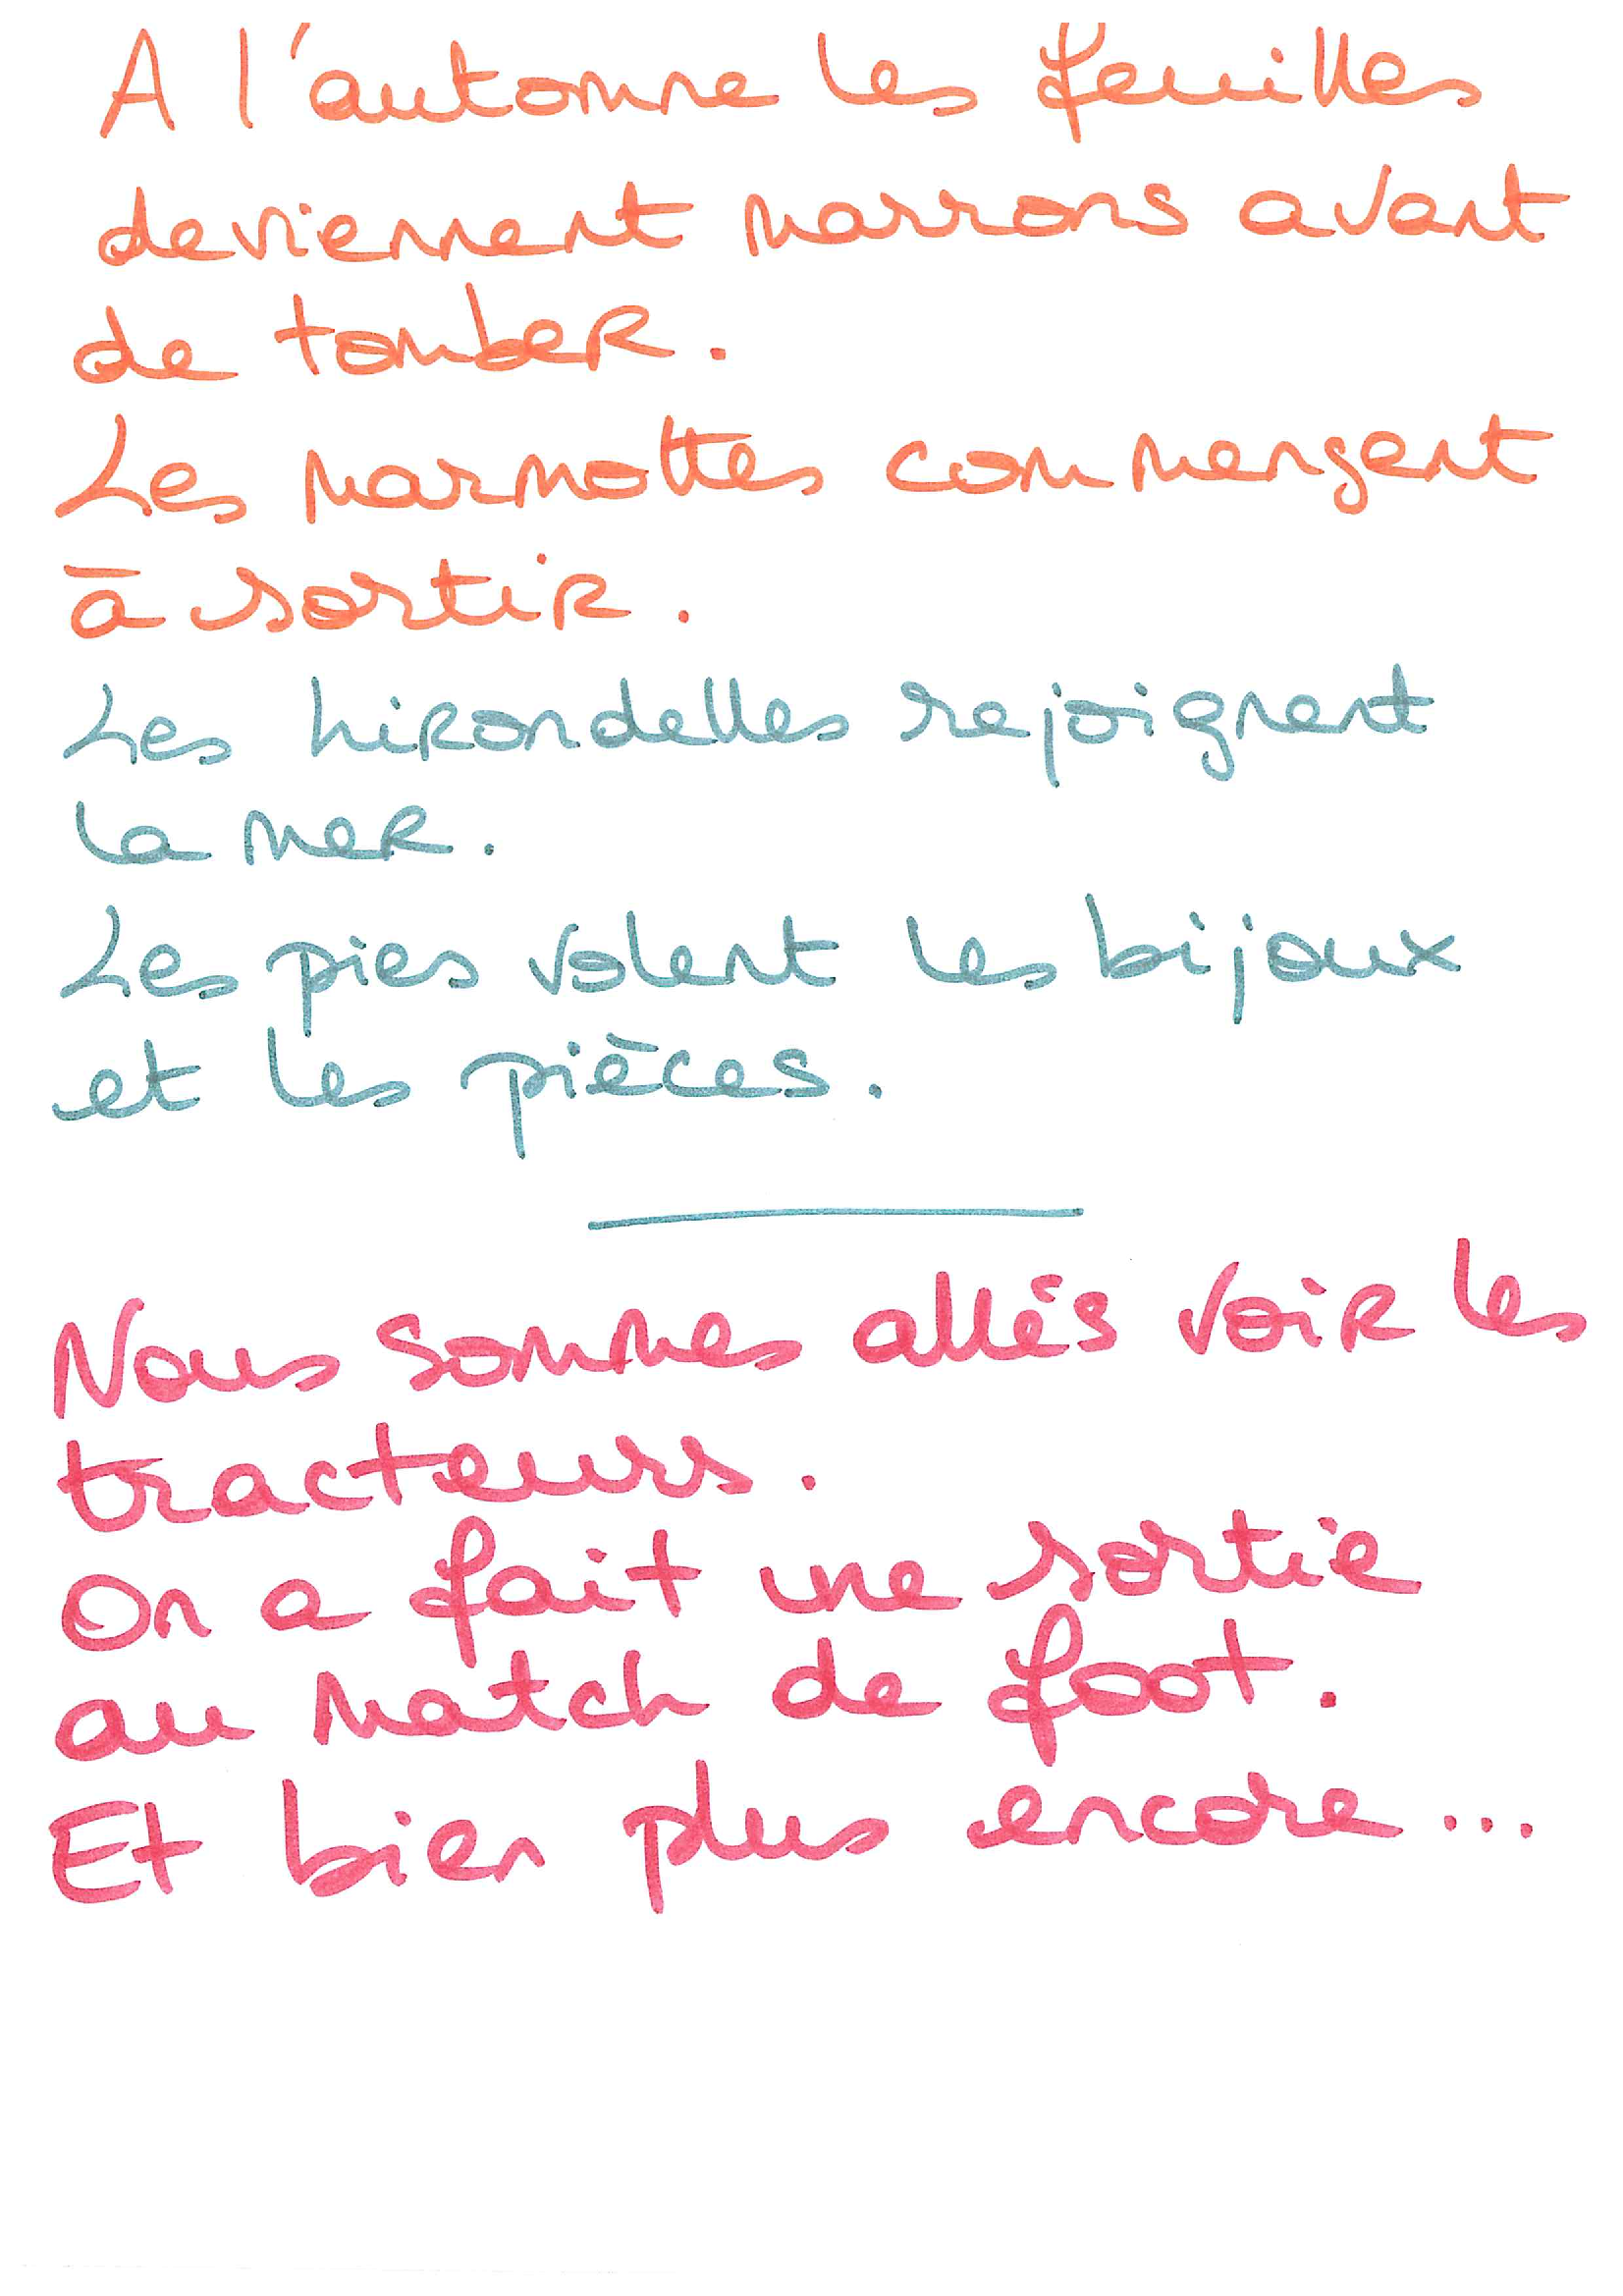 A l'automne les feuilles
deviennent marrons avant
de tomber.
Les marmottes commencent
à sortir.
Les hirondelles rejoignent
la mer.
Les pies volent les bijoux
et les pièces.
Nous sommes allés voir les
tracteurs.
On a fait une sortie
au match de foot.
Et bien plus encore...